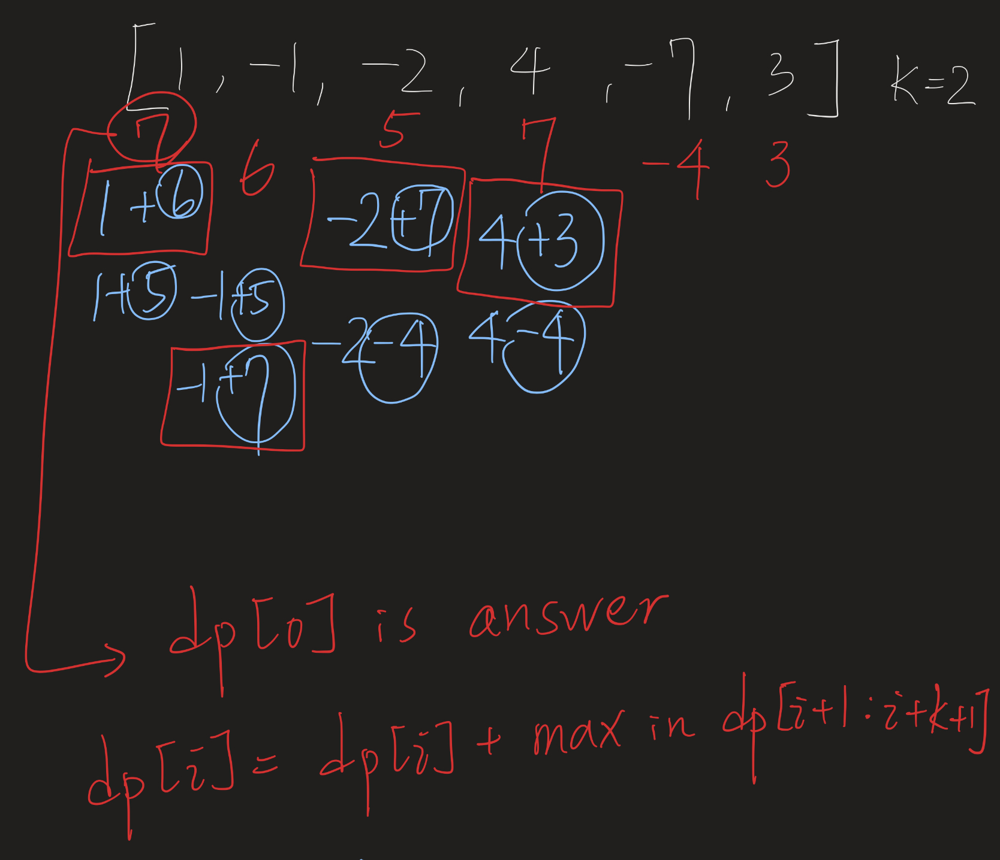 [1, -1, -2, 4, -7, 3] k=2
7 6 5 7 -4 3
1+6 -2+7 4+3
1+5 -1+5 -2-4 4-4
-1+7
dp[0] is answer
dp[i] = dp[i] + max in dp[i+1:i+k+1]